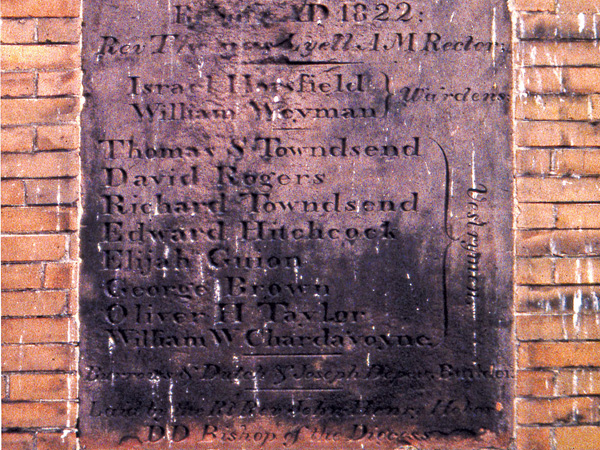 AD 1822:
Rev Thomas Lyell A M Rector.
Israel Horsfield
William Weyman
Wardens
Thomas S Towndsend
David Rogers
Richard Towndsend
Edward Hitchcock
Elijah Guion
George Brown
Oliver H Taylor
William W Chardavoyne.
Vestrymen
& Dutch & Joseph Builder
Laid by the Rt Rev John Henry Hobart
DD Bishop of the Diocess